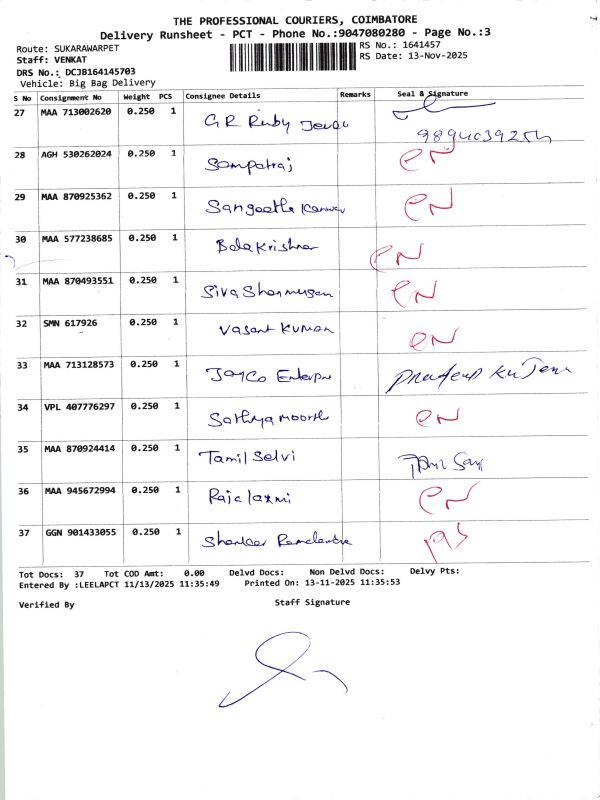 THE PROFESSIONAL COURIERS, COIMBATORE
Delivery Runsheet - PCT - Phone No.:9047080280 - Page No.:3
Route: SUKARAWARPET RS No.: 1641457
Staff: VENKAT RS Date: 13-Nov-2025
DRS No.: DCJB164145703
Vehicle: Big Bag Delivery
S No Consignment No Weight PCS Consignee Details Remarks Seal & Signature
27 MAA 713002620 0.250 1 GR Ruby
28 AGH 530262024 0.250 1 Sampatraj en
29 MAA 870925362 0.250 1 Sangeetha Kanwar en
30 MAA 577238685 0.250 1 Balakrishnan en
31 MAA 870493551 0.250 1 Siva Shanmugam en
32 SMN 617926 0.250 1 Vasant Kumar en
33 MAA 713128573 0.250 1 Jayco
34 VPL 407776297 0.250 1 Sathya moorth en
35 MAA 870924414 0.250 1 Tamil Selvi
36 MAA 945672994 0.250 1 Raja laxmi en
37 GGN 901433055 0.250 1 Shankar
Tot Docs: 37 Tot COD Amt: 0.00 Delvd Docs: Non Delvd Docs: Delvy Pts:
Entered By :LEELAPCT 11/13/2025 11:35:49 Printed On: 13-11-2025 11:35:53
Verified By Staff Signature